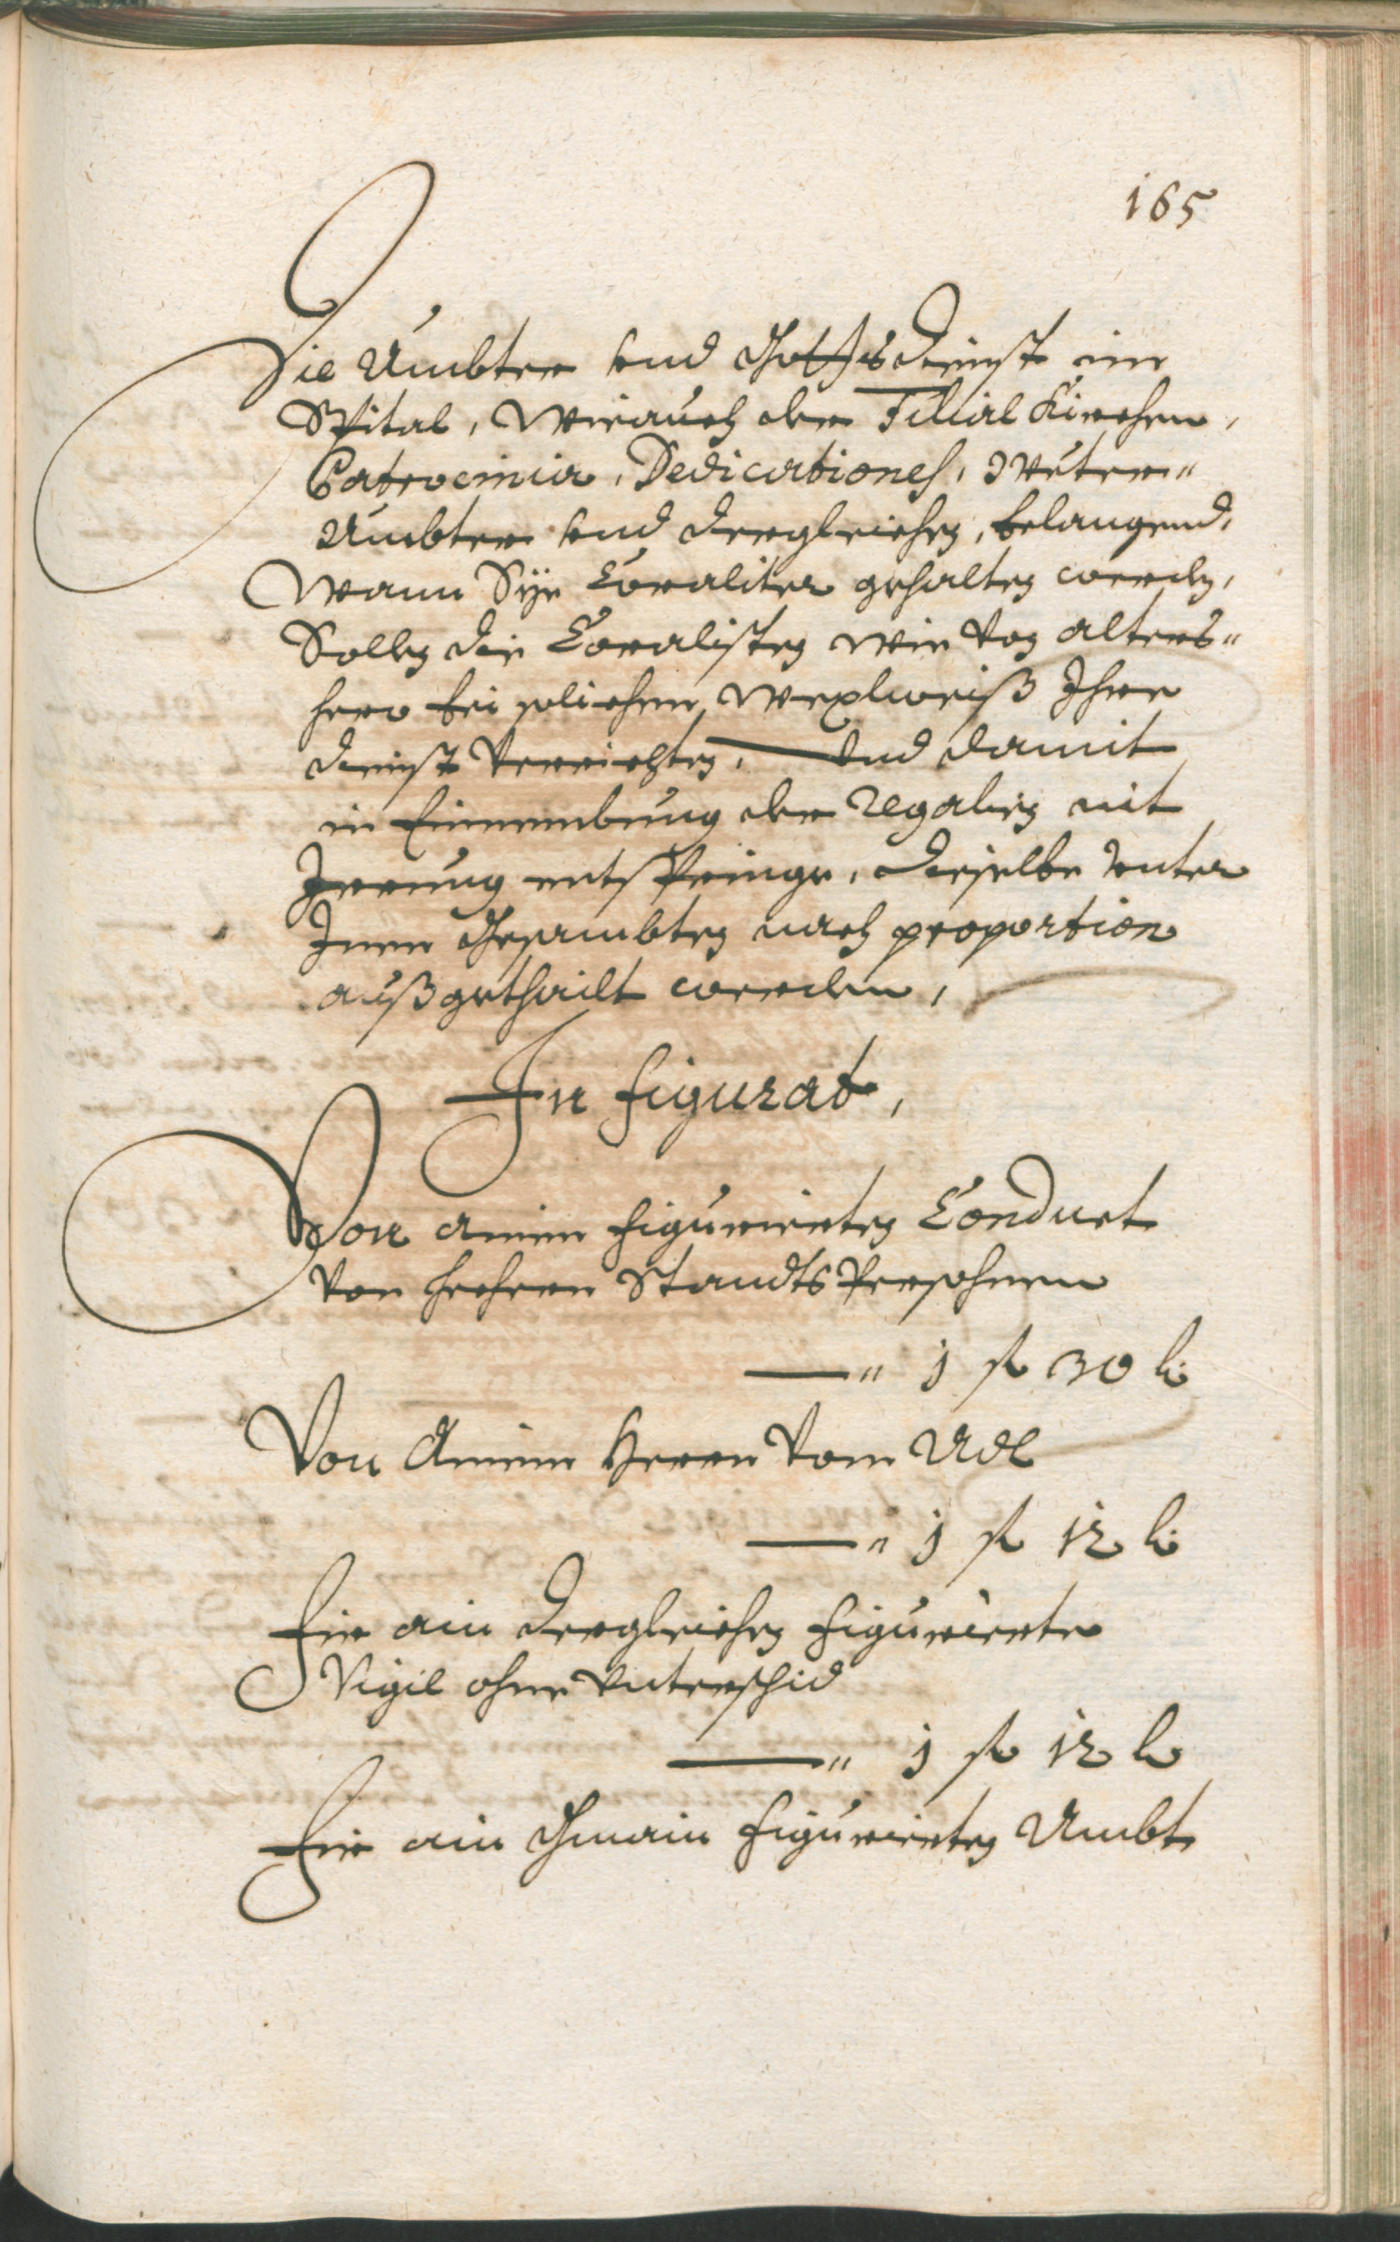 165
Die Ambter und Gottsdienst im
Spital, wie auch der Filial Kirchen,
Patrocinia, Dedicationes, Mueter-
Ambter und dergleichen, belangend,
Wann Sÿe Coraliter gehalten werden,
Sollen die Coralisten wie von alters-
hero bei solichem wexlweiß Ihre
dienst verrichten, und damit
in Einnembung der Regalien nit
Irrung entspringe, dieselbe unter
Inen Gesambten nach proportion
außgethailt werden,
In figurat,
Von ainem figurierten Conduct
von hechern Standts Persohnen
— " 1 fl 30 k:
Von Ainem Herrn vom Adl
— " 1 fl 12 k:
Fir ain dergleichen figurierte
Vigil ohne Unterschid
— " 1 fl 12 k
Fir ain Gmain figurierten Ambt